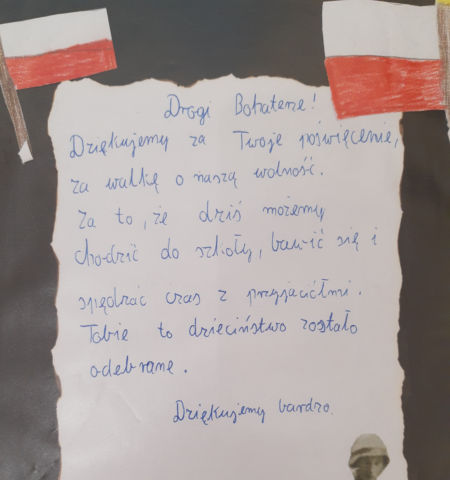 Drogi Bohaterze!
Dziękujemy za Twoje poświęcenie,
za walkę o naszą wolność.
Za to, że dziś możemy
chodzić do szkoły, bawić się i
spędzać czas z przyjaciółmi.
Tobie to dzieciństwo zostało
odebrane.
Dziękujemy bardzo.